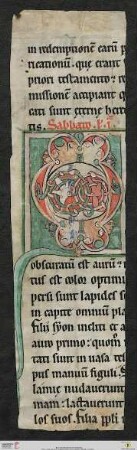 in redemptionē earū p
ricationū. que erant
priori testamento: re
missionē accipiant q
cati sunt eterne here
tis. Sabbato.
obscuratū est aurū:
tus est color optimu
persi sunt lapides s
in capite omniū pla
Filii syon incliti et a
auro primo: quom
tati sunt in uasa te
pus manuū figuli. S
lamie nudauerunt
mam: lactauerunt
los suos. Filia ppli